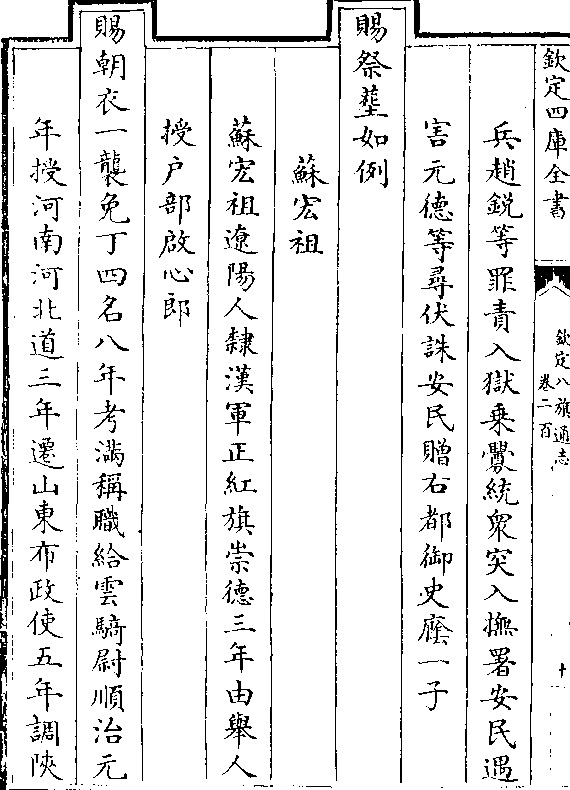 欽定四庫全書
欽定八旗通志
卷二百
十
兵趙銳等罪責入獄乗釁統衆突入撫署安民遇
害元德等尋伏誅安民贈右都御史廕一子
賜祭塟如例
蘇宏祖
蘇宏祖遼陽人隸漢軍正紅旗崇德三年由舉人
授户部啟心郎
賜朝衣一襲免丁四名八年考滿稱職給雲騎尉順治元
年授河南河北道三年遷山東布政使五年調陜